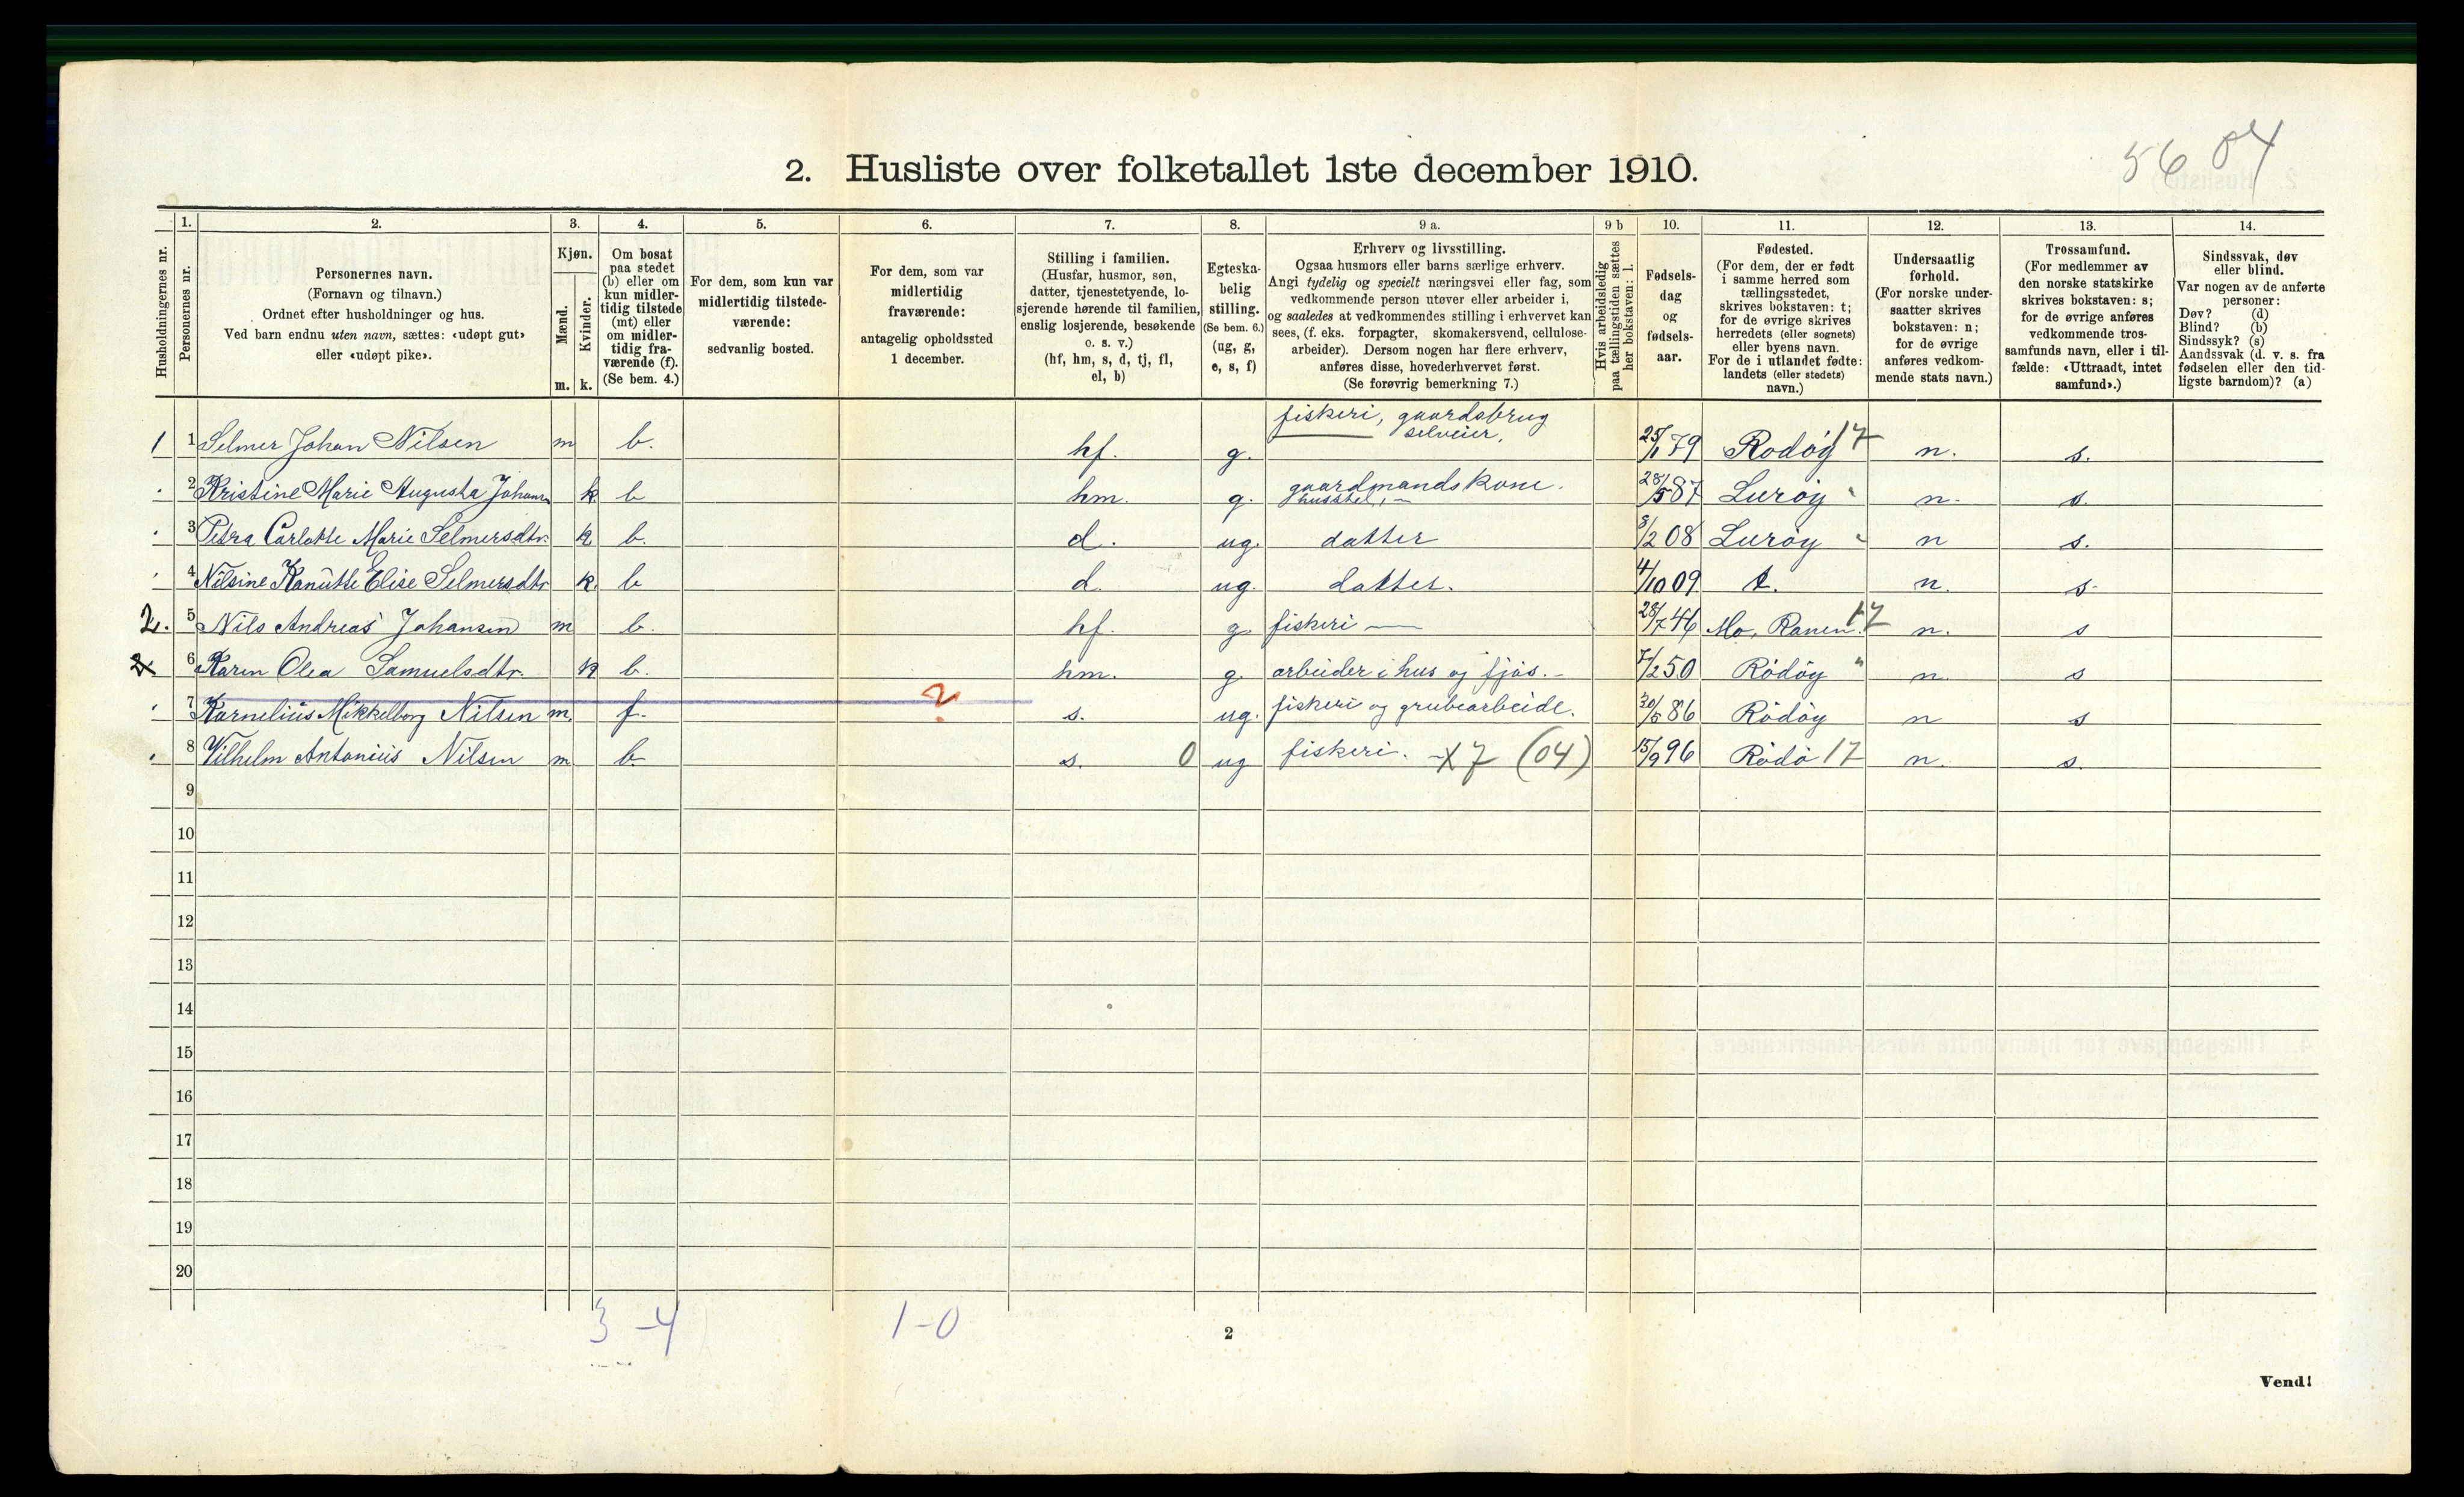 56 04
2. Husliste over folketallet 1ste december 1910.
Husholdningernes nr.
1.
Personernes nr.
2.
Personernes navn.
(Fornavn og tilnavn.)
Ordnet efter husholdninger og hus.
Ved barn endnu uten navn, sættes: «udøpt gut»
eller «udøpt pike».
3.
Kjøn.
Mænd.
Kvinder.
m. k.
4.
Om bosat
paa stedet
(b) eller om
kun midler-
tidig tilstede
(mt) eller
om midler-
tidig fra-
værende (f).
(Se bem. 4.)
5.
For dem, som kun var
midlertidig tilstede-
værende:
sedvanlig bosted.
6.
For dem, som var
midlertidig
fraværende:
antagelig opholdssted
1 december.
7.
Stilling i familien.
(Husfar, husmor, søn,
datter, tjenestetyende, lo-
sjerende hørende til familien,
enslig losjerende, besøkende
o. s. v.)
(hf, hm, s, d, tj, fl,
el, b)
8.
Egteska-
belig
stilling.
(Se bem. 6.)
(ug, g,
e, s, f)
9 a.
Erhverv og livsstilling.
Ogsaa husmors eller barns særlige erhverv.
Angi tydelig og specielt næringsvei eller fag, som
vedkommende person utøver eller arbeider i,
og saaledes at vedkommendes stilling i erhvervet kan
sees, (f. eks. forpagter, skomakersvend, cellulose-
arbeider). Dersom nogen har flere erhverv,
anføres disse, hovederhvervet først.
(Se forøvrig bemerkning 7.)
9 b
Hvis arbeidsledig
paa tællingstiden sættes
her bokstaven: l.
10.
Fødsels-
dag
og
fødsels-
aar.
11.
Fødested.
(For dem, der er født
i samme herred som
tællingsstedet,
skrives bokstaven: t;
for de øvrige skrives
herredets (eller sognets)
eller byens navn.
For de i utlandet fødte:
landets (eller stedets)
navn.)
12.
Undersaatlig
forhold.
(For norske under-
saatter skrives
bokstaven: n;
for de øvrige
anføres vedkom-
mende stats navn.)
13.
Trossamfund.
(For medlemmer av
den norske statskirke
skrives bokstaven: s;
for de øvrige anføres
vedkommende tros-
samfunds navn, eller i til-
fælde: «Uttraadt, intet
samfund».)
14.
Sindssvak, døv
eller blind.
Var nogen av de anførte
personer:
Døv? (d)
Blind? (b)
Sindssyk? (s)
Aandssvak (d. v. s. fra
fødselen eller den tid-
ligste barndom)? (a)
fiskeri, gaardsbrug
1 1 Selmer Johan Nilsen m b. hf. g. selveier, 25/1 79 Rødøy 17 n. s.
2 Kristine Marie Augusta Johans k b hm. g. gaardmandskone. husstel, 28/5 87 Lurøy n. s
3 Petra Carlotte Marie Selmersdtr. k b. d. ug. datter 8/2 08 Lurøy n s.
4 Nilsine Kanutte Elise Selmersdtr k. b d. ug. datter. 4/10 09 t. n. s.
2. 5 Nils Andreas Johansen m b. hf. g fiskeri 28/7 46 Mo, Ranen. 17 n. s
2. 6 Karen Olea Samuelsdtr. k b. hm. g. arbeider i hus og fjøs. 7/2 50 Rödöy n. s
7 Kornelius Mikkelborg Nilsen m. f. ? s. ug. fiskeri og grubearbeide. 30/5 86 Rödöy n s
8 Vilhelm Antonius Nilsen m b s. 0 ug fiskeri. x7 (04) 15/9 96 Rödö 17 n. s.
9
10
11
12
13
14
15
16
17
18
19
20
3 - 4 1 - 0
2
Vend!